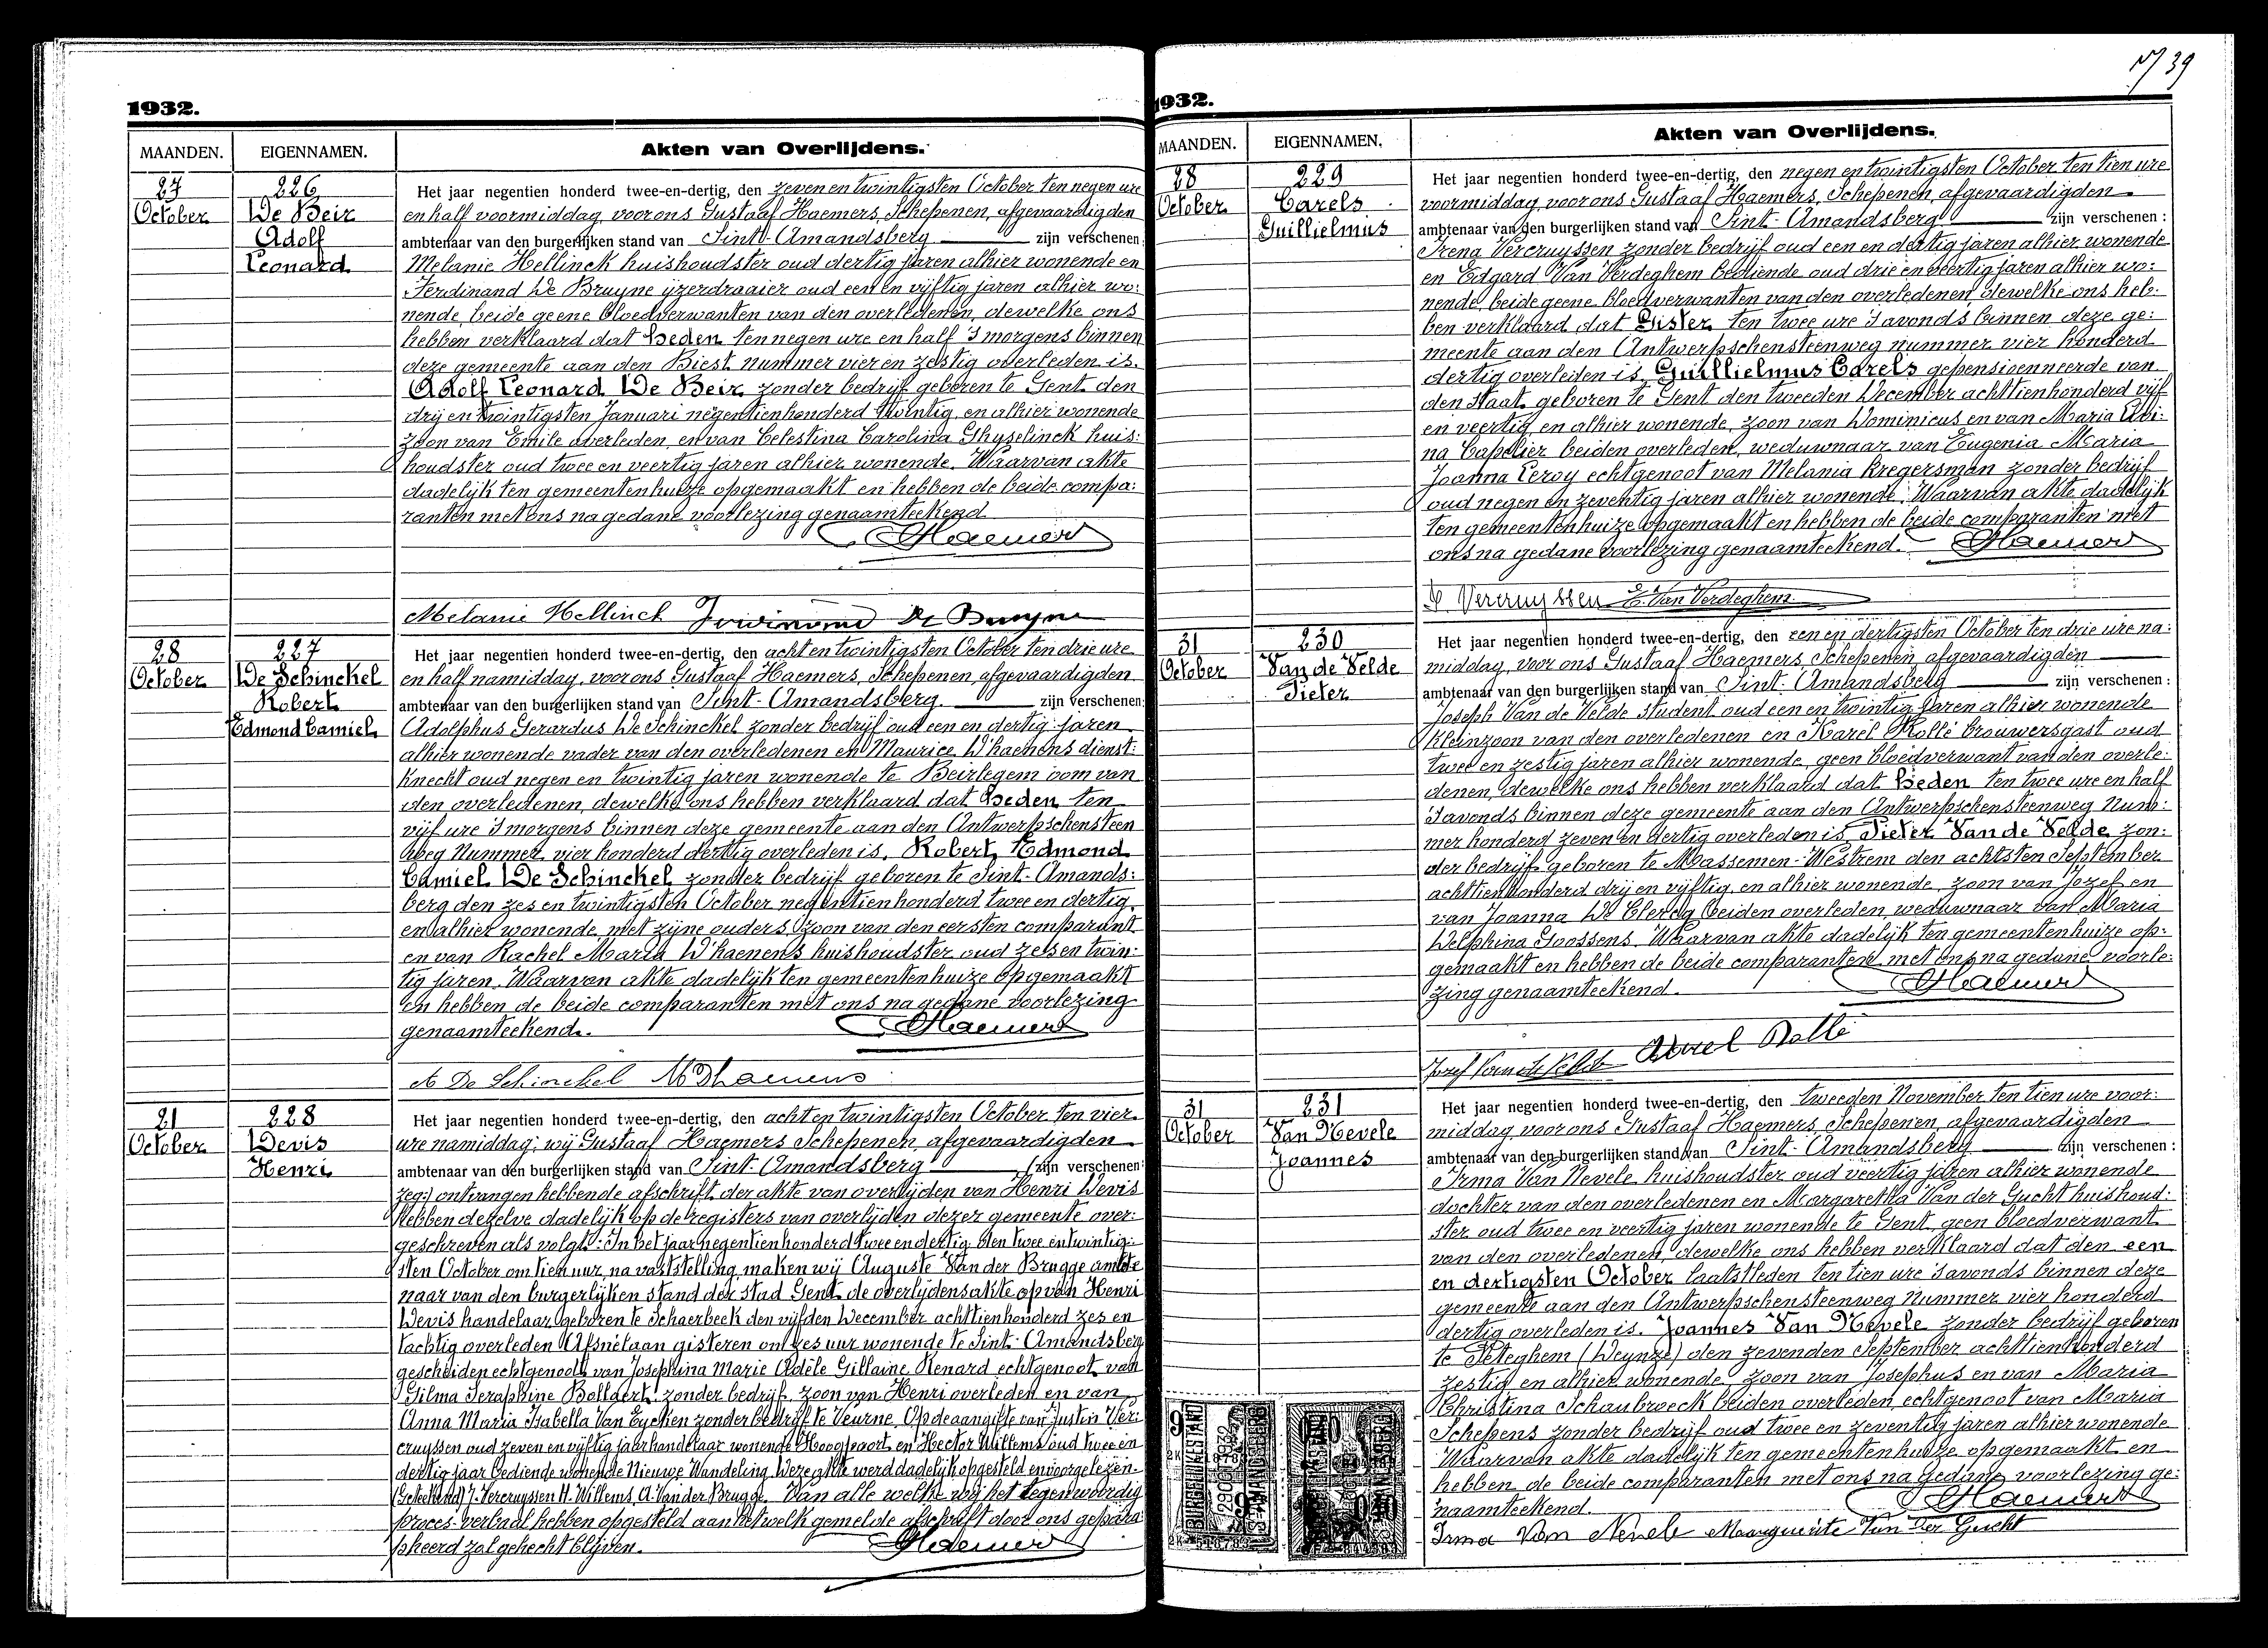 1932.
MAANDEN. EIGENNAMEN. Akten van Overlijdens.
27 226 Het jaar negentien honderd twee-en-dertig, den zeven en twintigsten October ten negen ure
October De Beir en half voormiddag, voor ons Gustaaf Haemers, Schepenen, afgevaardigden
Adolf ambtenaar van den burgerlijken stand van Sint-Amandsberg zijn verschenen:
Leonard Melanie Hellinck huishoudster oud dertig jaren alhier wonende en
Ferdinand De Bruyne ijzerdraaier oud een en vijftig jaren alhier wo:
nende, beide geene bloedverwanten van den overledenen, dewelke ons
hebben verklaard dat heden ten negen ure en half 's morgens binnen
deze gemeente aan den Biest nummer vier en zestig overleden is.
Adolf Leonard De Beir zonder bedrijf geboren te Gent den
drij en twintigsten Januari negentienhonderd twintig, en alhier wonende
zoon van Emile overleden, en van Celestina Carolina Ghyselinck huis:
houdster oud twee en veertig jaren alhier wonende. Waarvan akte
dadelijk ten gemeentenhuize opgemaakt en hebben de beide compa:
ranten met ons na gedane voorlezing genaamteekend
Haemers
Melanie Hellinck Ferdinand De Bruyne
28 227 Het jaar negentien honderd twee-en-dertig, den acht en twintigsten October ten drie ure
October De Schinckel en half namiddag, voor ons Gustaaf Haemers, Schepenen afgevaardigden
Robert ambtenaar van den burgerlijken stand van Sint-Amandsberg. zijn verschenen:
Edmond Camiel Adolphus Gerardus De Schinckel zonder bedrijf oud een en dertig jaren
alhier wonende vader van den overledenen en Maurice D'haenens dienst:
knecht oud negen en twintig jaren wonende te Beirlegem oom van
den overledenen, dewelke ons hebben verklaard dat heden ten
vijf ure 's morgens binnen deze gemeente aan den Antwerpschensteen
weg Nummer vier honderd dertig overleden is. Robert Edmond
Camiel De Schinckel zonder bedrijf geboren te Sint-Amands:
berg den zes en twintigsten October negentienhonderd twee en dertig
en alhier wonende met zijne ouders, zoon van den eersten comparant
en van Rachel Maria D'haenens huishoudster oud zes en twin:
tig jaren. Waarvan akte dadelijk ten gemeentenhuize opgemaakt
en hebben de beide comparanten met ons na gedane voorlezing
genaamteekend. Haemers
A De Schinckel M Dhaenens
21 228 Het jaar negentien honderd twee-en-dertig, den acht en twintigsten October ten vier
October Devis ure namiddag; wij Gustaaf Haemers Schepenen, afgevaardigden
Henri ambtenaar van den burgerlijken stand van Sint-Amandsberg (zijn verschenen:
zeg:) ontvangen hebbende afschrift der akte van overlijden van Henri Devis
hebben dezelve dadelijk op de registers van overlijden dezer gemeente over:
geschreven als volgt: In het jaar negentienhonderd twee en dertig den twee en twintig:
sten October om tien uur, na vaststelling, maken wij Auguste Van der Brugge ambte
naar van den burgerlijken stand der stad Gent de overlijdensakte op van Henri
Devis handelaar, geboren te Schaerbeek den vijfden December achttienhonderd zes en
tachtig overleden Afsnélaan gisteren om zes uur wonende te Sint-Amandsberg
gescheiden echtgenoot van Josephina Marie Adèle Gillaine Renard echtgenoot van
Gilma Seraphine Bollaert zonder bedrijf, zoon van Henri overleden en van
Anna Maria Isabella Van Eycken zonder bedrijf te Veurne. Op de aangifte van Justin Ver:
cruyssen oud zeven en vijftig jaar handelaar wonende Hoogpoort en Hector Willems oud twee en
dertig jaar bediende wonende Nieuwe Wandeling. Deze akte werd dadelijk opgesteld en voorgelezen
(Geteekend) J. Vercruyssen H. Willems, A. Van der Brugge. Van alle welke wij het tegenwoordig
proces-verbaal hebben opgesteld aan hetwelk gemelde afschrift door ons gepara
pheerd zal gehecht blijven. Haemers
39
1932.
MAANDEN. EIGENNAMEN. Akten van Overlijdens.
28 229 Het jaar negentien honderd twee-en-dertig, den negen en twintigsten October ten tien ure
October Carels voormiddag, voor ons Gustaaf Haemers, Schepenen, afgevaardigden
Guillielmus ambtenaar van den burgerlijken stand van Sint-Amandsberg zijn verschenen:
Irena Vercruyssen zonder bedrijf oud een en dertig jaren alhier wonende
en Edgard Van Verdeghem bediende oud drie en veertig jaren alhier wo:
nende, beide geene bloedverwanten van den overledenen, dewelke ons heb:
ben verklaard dat Gister ten twee ure 's avonds binnen deze ge:
meente aan den Antwerpschensteenweg nummer vier honderd
dertig overleden is, Guillielmus Carels gepensioenneerde van
den Staat, geboren te Gent den tweeden December achttienhonderd vijf
en veertig, en alhier wonende, zoon van Dominicus en van Maria Albi:
na Capelier beiden overleden, weduwnaar van Eugenia Maria
Joanna Leroy echtgenoot van Melania Kregersman zonder bedrijf
oud negen en zeventig jaren alhier wonende. Waarvan akte dadelijk
ten gemeentenhuize opgemaakt en hebben de beide comparanten met
ons na gedane voorlezing genaamteekend. Haemers
Vercruyssen E. Van Verdeghem
31 230 Het jaar negentien honderd twee-en-dertig, den een en dertigsten October ten drie ure na:
October Van de Velde middag, voor ons Gustaaf Haemers, Schepenen, afgevaardigden
Pieter ambtenaar van den burgerlijken stand van Sint-Amandsberg zijn verschenen:
Joseph Van de Velde student oud een en twintig jaren alhier wonende
kleinzoon van den overledenen en Karel Rollé brouwersgast oud
twee en zestig jaren alhier wonende, geen bloedverwant van den overle:
denen, dewelke ons hebben verklaard dat heden ten twee ure en half
's avonds binnen deze gemeente aan den Antwerpschensteenweg Num:
mer honderd zeven en dertig overleden is, Pieter Van de Velde zon:
der bedrijf geboren te Massemen-Westrem den achtsten September
achttienhonderd drij en vijftig, en alhier wonende, zoon van Jozef en
van Joanna De Clercq beiden overleden, weduwnaar van Maria
Delphina Goossens. Waarvan akte dadelijk ten gemeentenhuize op:
gemaakt en hebben de beide comparanten met ons na gedane voorle:
zing genaamteekend. Haemers
Jozef Van de Velde Karel Rolle
31 231 Het jaar negentien honderd twee-en-dertig, den tweeden November ten tien ure voor:
October Van Nevele middag, voor ons Gustaaf Haemers, Schepenen, afgevaardigden
Joannes ambtenaar van den burgerlijken stand van Sint-Amandsberg zijn verschenen:
Irma Van Nevele huishoudster oud veertig jaren alhier wonende
dochter van den overledenen en Margaretha Van der Gucht huishoud:
ster oud twee en veertig jaren wonende te Gent, geen bloedverwant
van den overledenen, dewelke ons hebben verklaard dat den een
en dertigsten October laatstleden ten tien ure 's avonds binnen deze
gemeente aan den Antwerpschensteenweg Nummer vier honderd
dertig overleden is. Joannes Van Nevele zonder bedrijf geboren
te Peteghem (Deynze) den zevenden September achttienhonderd
zestig en alhier wonende, zoon van Josephus en van Maria
Christina Schaubroeck beiden overleden, echtgenoot van Maria
Schepens zonder bedrijf oud twee en zeventig jaren alhier wonende
Waarvan akte dadelijk ten gemeentenhuize opgemaakt en
hebben de beide comparanten met ons na gedane voorlezing ge:
naamteekend. Haemers
Irma Van Nevele Marguerite Van Der Gucht
BURGERLIJKE STAND
29 OCT 1932
ST AMANDSBERG